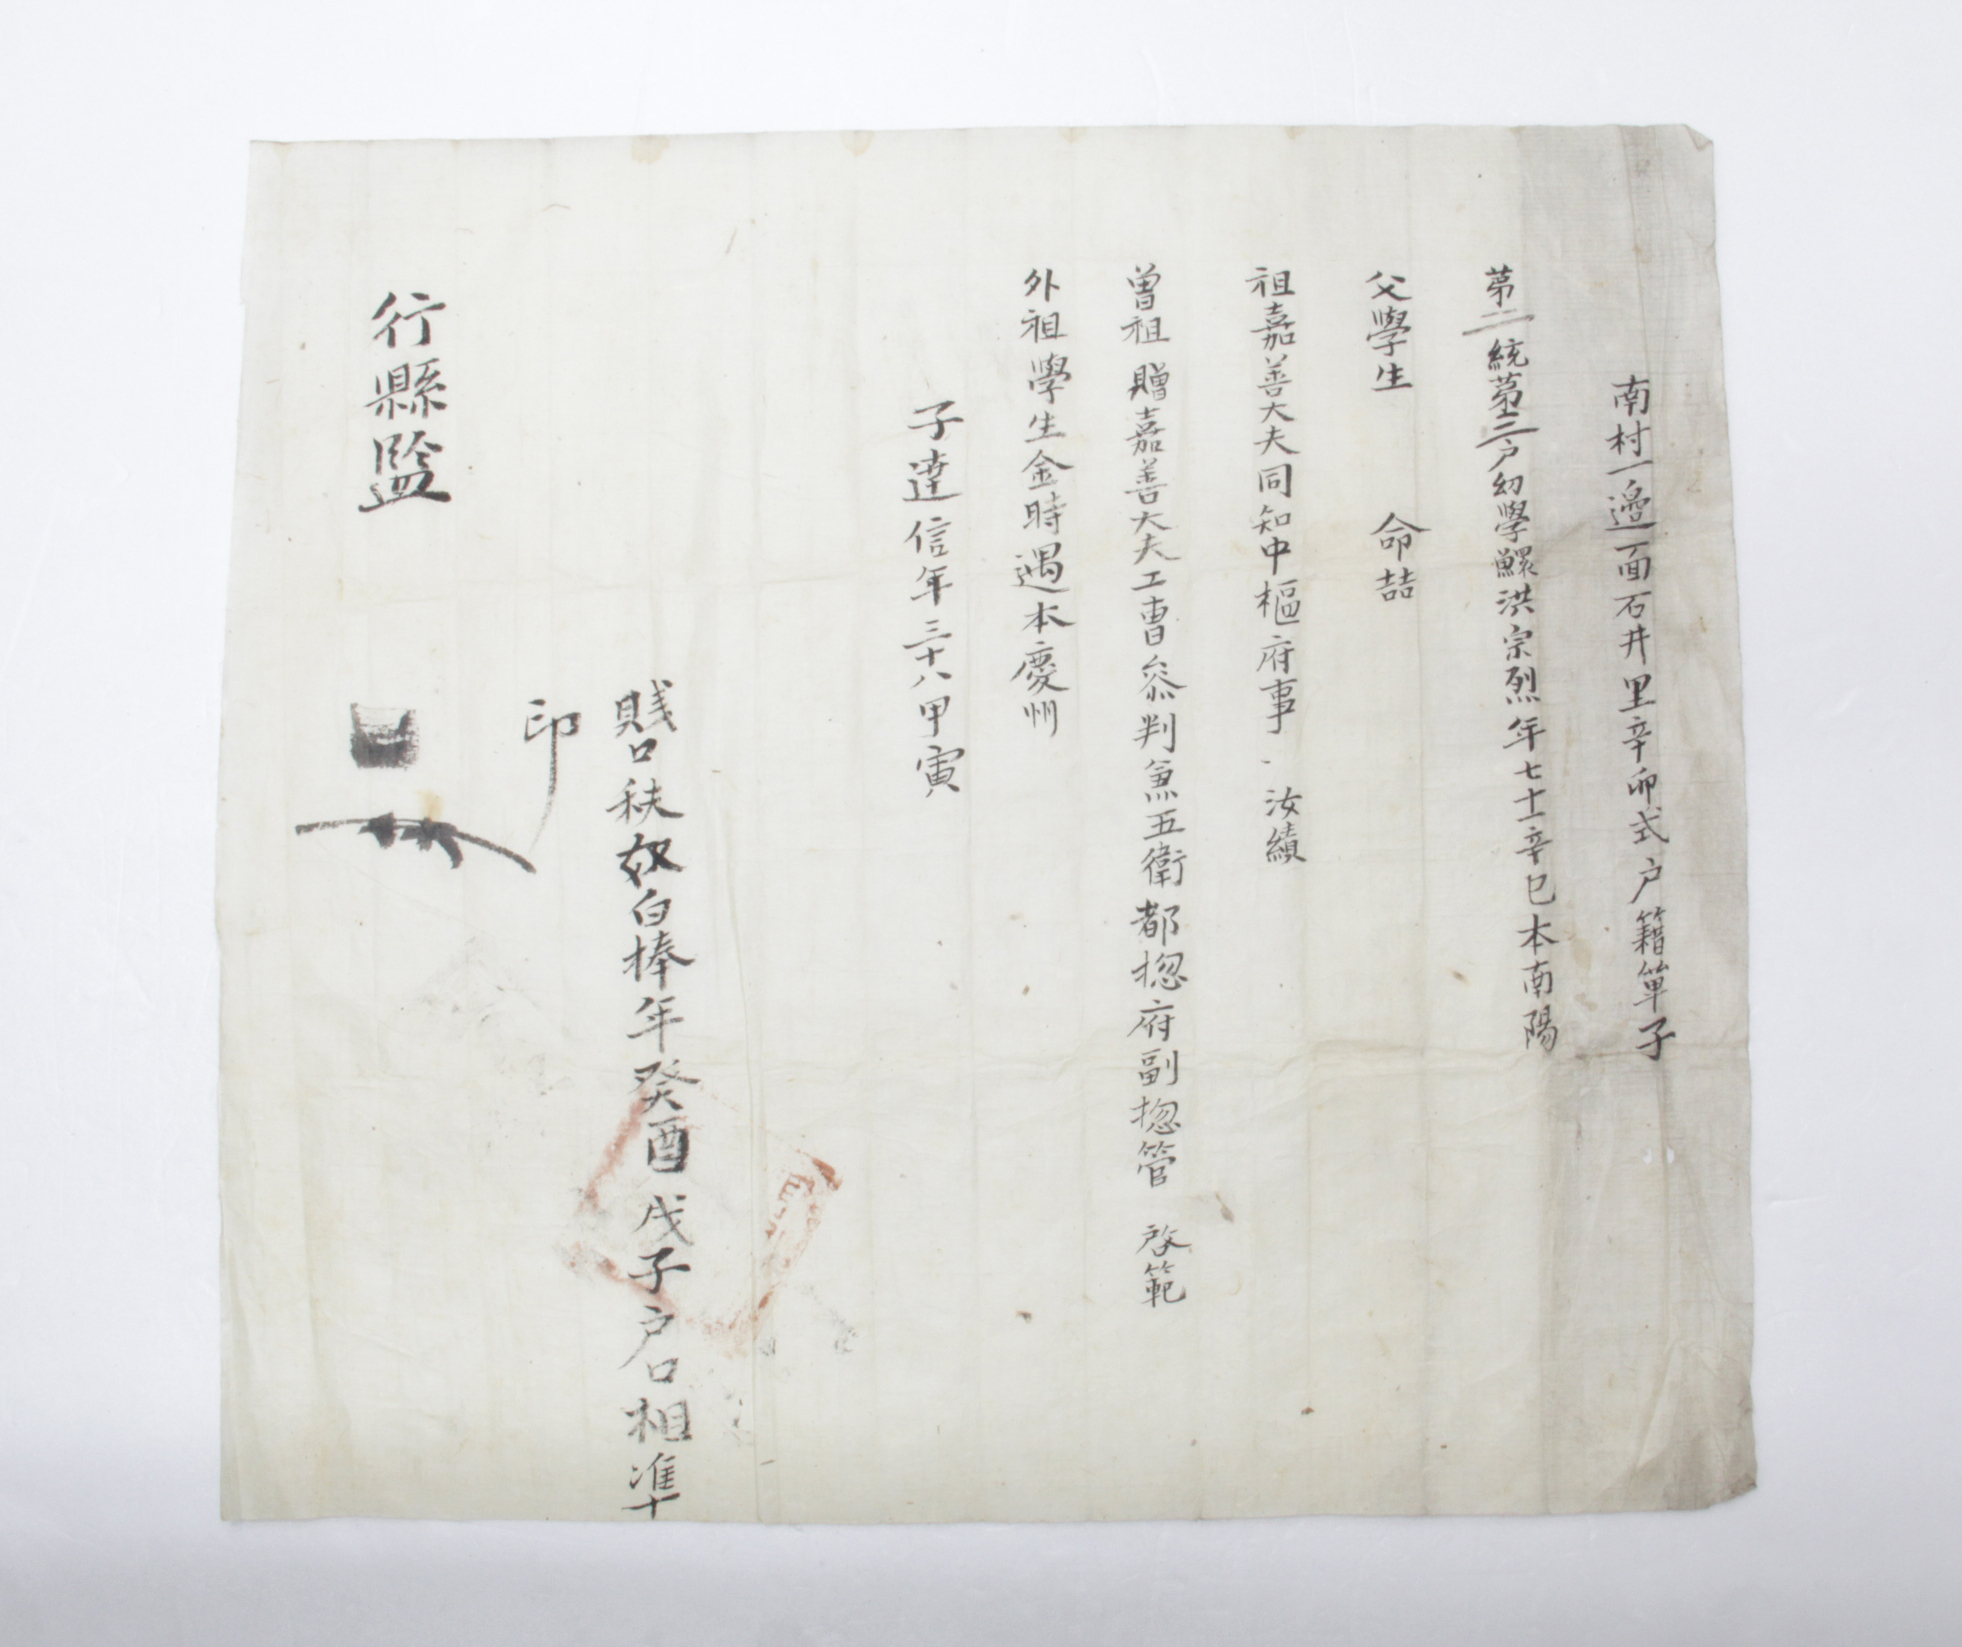 南村一邉面石井里辛卯式户籍單子
苐二統苐三户幼學鰥洪宗烈年七十一辛巳本南陽
父學生 命喆
祖嘉善大夫同知中樞府事 汝績
曾祖 贈嘉善大夫工曹叅判兼五衛都摠府副摠管 啓範
外祖學生金時遇本慶州
子達信年三十八甲寅
賤口秩奴白捧年癸酉戊子户口相準
印
行縣監